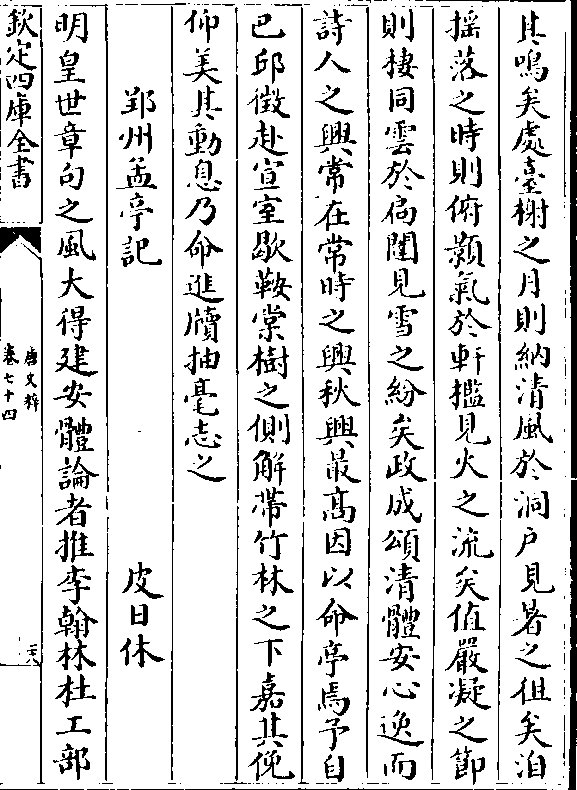 其鳴矣處臺榭之月則納清風於洞户見暑之徂矣洎
揺落之時則俯顥氣於軒檻見火之流矣值嚴凝之節
則棲同雲於扄闥見雪之紛矣政成頌清體安心逸而
詩人之興常在常時之興秋興最髙因以命亭焉予自
巴邱徵赴宣室歇鞍棠樹之側解帶竹林之下嘉其俛
仰美其動息乃命進牘抽毫志之
郢州孟亭記
皮日休
明皇世章句之風大得建安體論者推李翰林杜工部
欽定四庫全書
唐文粹
卷七十四
二六